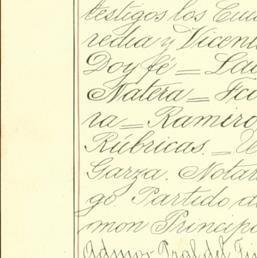 testigos los Ciu
redia y Vicent
Doy fé = Lau
Natera = Fci
ra = Ramiro
Rúbricas. =
Garza. Notar
go Partido d
mon Principa
Admor. Pral. del Ti